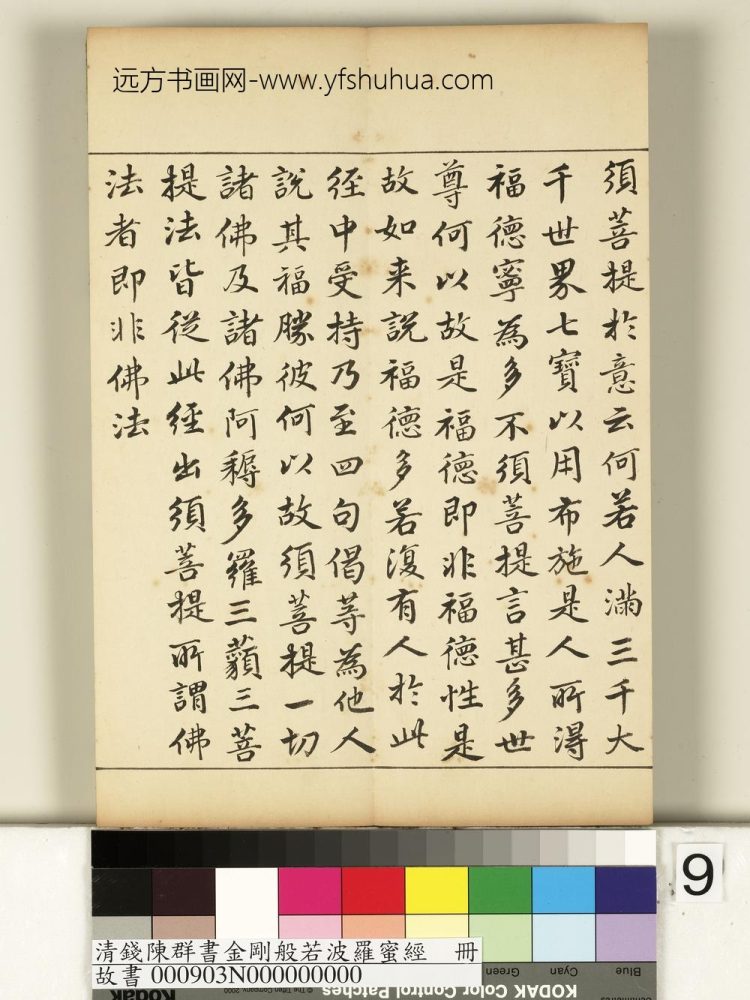 远方书画网-www.yfshuhua.com
須菩提於意云何若人滿三千大
千世界七寶以用布施是人所得
福德寧為多不須菩提言甚多世
尊何以故是福德即非福德性是
故如来說福德多若復有人於此
經中受持乃至四句偈等為他人
說其福勝彼何以故須菩提一切
諸佛及諸佛阿耨多羅三藐三菩
提法皆從此經出須菩提所謂佛
法者即非佛法
9
清錢陳群書金剛般若波羅蜜經 冊
故書 000903N000000000
Green
Cyan
Blue
© The Tiffen Company, 2000
Kodak
KODAK Color Control Patches